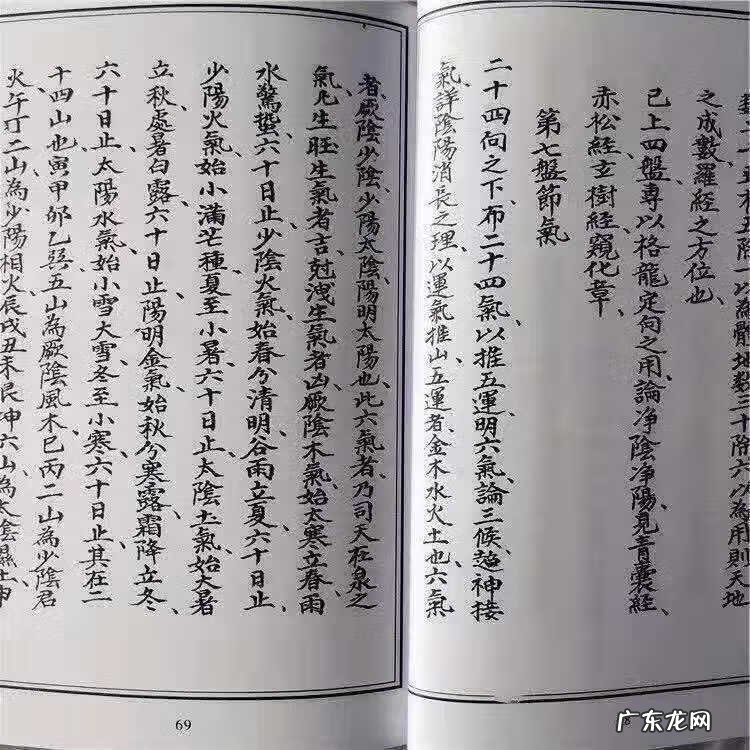 之成數羅經之方位也、
已上四盤專以格龍定向之用、論净陰净陽、見青囊經、
赤松經、玄樹經、窺化章、
第七盤節氣
二十四向之下、布二十四氣、以推五運、明六氣、論三候、超神接
氣、詳陰陽消長之理、以運氣推山、五運者、金木水火土也、六氣
者、厥陰少陰、少陽太陰、陽明太陽也、此六氣者、乃司天在泉之
氣、凡生旺生氣者吉、尅洩生氣者凶、厥陰木氣、始大寒立春、雨
水驚蟄、六十日止、少陰火氣、始春分清明、谷雨立夏、六十日止、
少陽火氣、始小滿芒種、夏至小暑、六十日止、太陰土氣、始大暑
立秋、處暑白露、六十日止、陽明金氣、始秋分寒露、霜降立冬、
六十日止、太陽水氣、始小雪大雪、冬至小寒、六十日止、其在二
十四山也、寅甲卯乙巽五山為厥陰風木、巳丙二山為少陰君
火、午丁二山為少陽相火、辰戌丑未艮坤六山、為太陰濕土、申
69
广东龙网